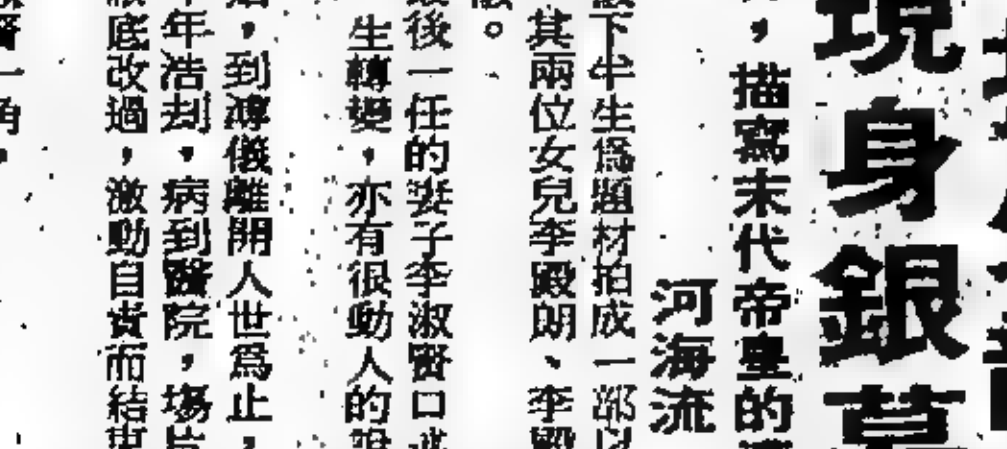 現身銀幕
，描寫末代帝皇的
河海流
下半生爲題材拍成一部以
其兩位女兒李殿朗、李殿
。
最後一任的妻子李淑賢口
生轉變，亦有很動人的
，到溥儀離開人世爲止，
年浩刧，病到醫院，場
底改過，激動自責而結束
一角，